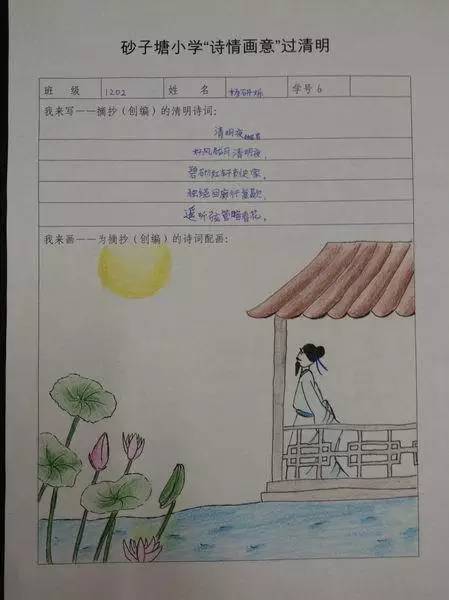 砂子塘小学“诗情画意”过清明
班 级 1202 姓 名 学号 6
我来写——摘抄（创编）的清明诗词：
清明夜
好风胧月清明夜，
碧砌红轩刺史家。
独绕回廊行复歇，
遥听弦管暗看花。
我来画——为摘抄（创编）的诗词配画：